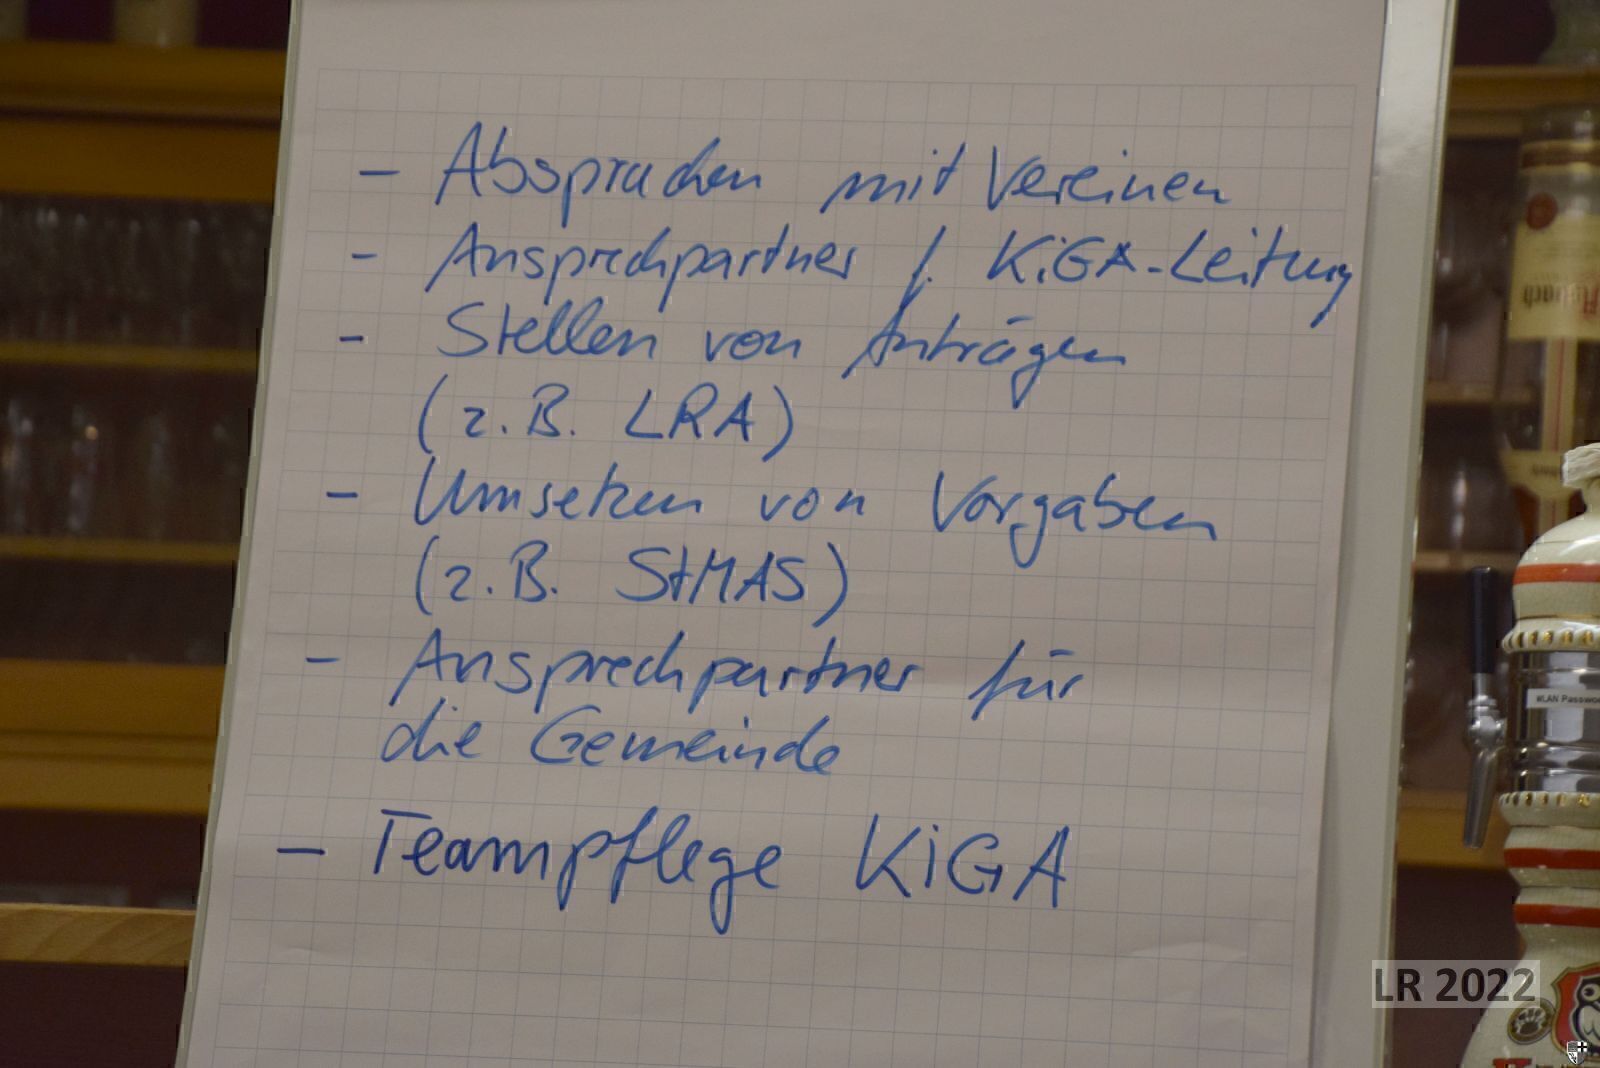 - Absprachen mit Vereinen
- Ansprechpartner f. KiGA-Leitung
- Stellen von Anträgen
(z.B. LRA)
- Umsetzen von Vorgaben
(z.B. StMAS)
- Ansprechpartner für
die Gemeinde
- Teampflege KiGA
WLAN Passwor
LR 2022